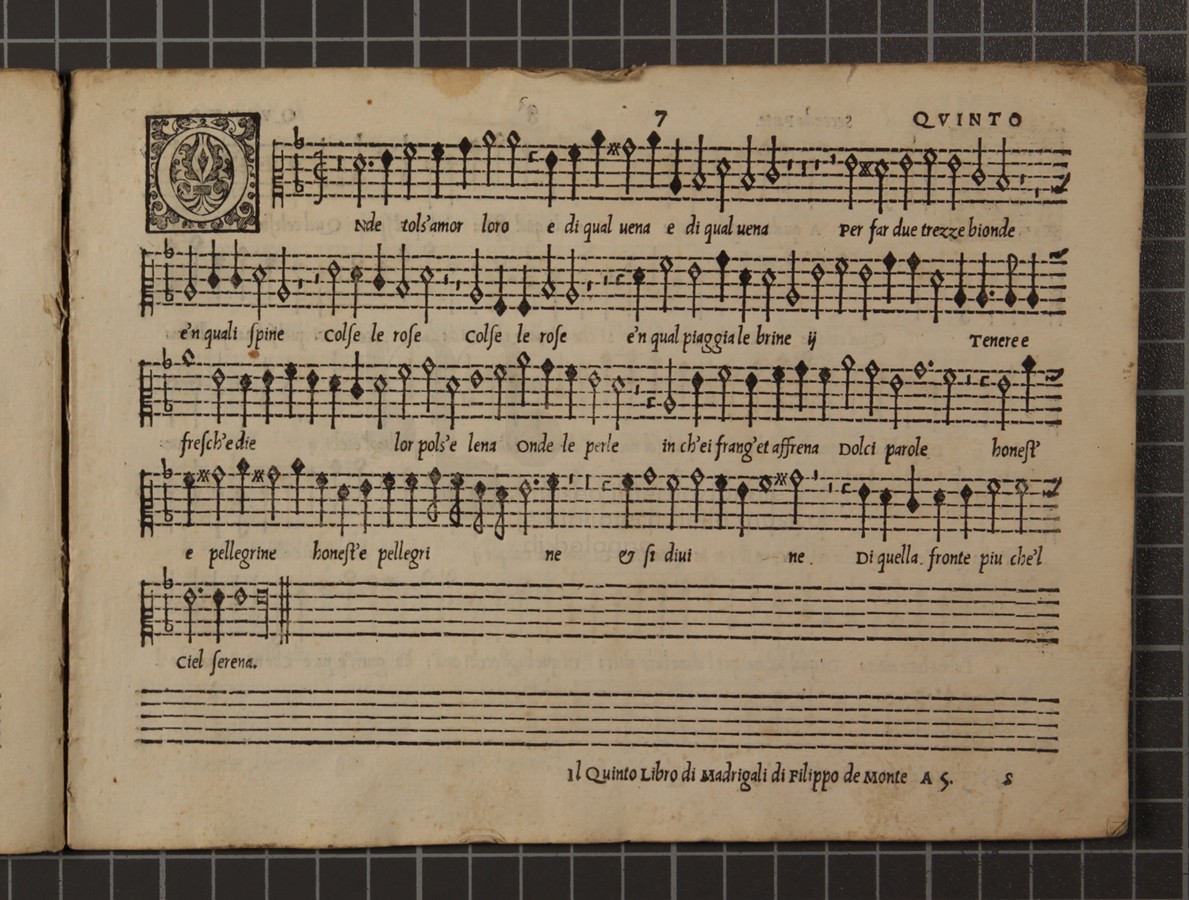 7 QVINTO
ONde tols'amor loro e di qual uena e di qual uena Per far due trezze bionde
e'n quali spine Colse le rose Colse le rose e'n qual piaggia le brine ij Tenere e
fresch'e die lor pols'e lena Onde le perle in ch'ei frang'et affrena Dolci parole honest'
e pellegrine honest'e pellegri ne & si diui ne. Di quella fronte piu che'l
Ciel serena.
Il Quinto Libro di Madrigali di Filippo de Monte A 5. S